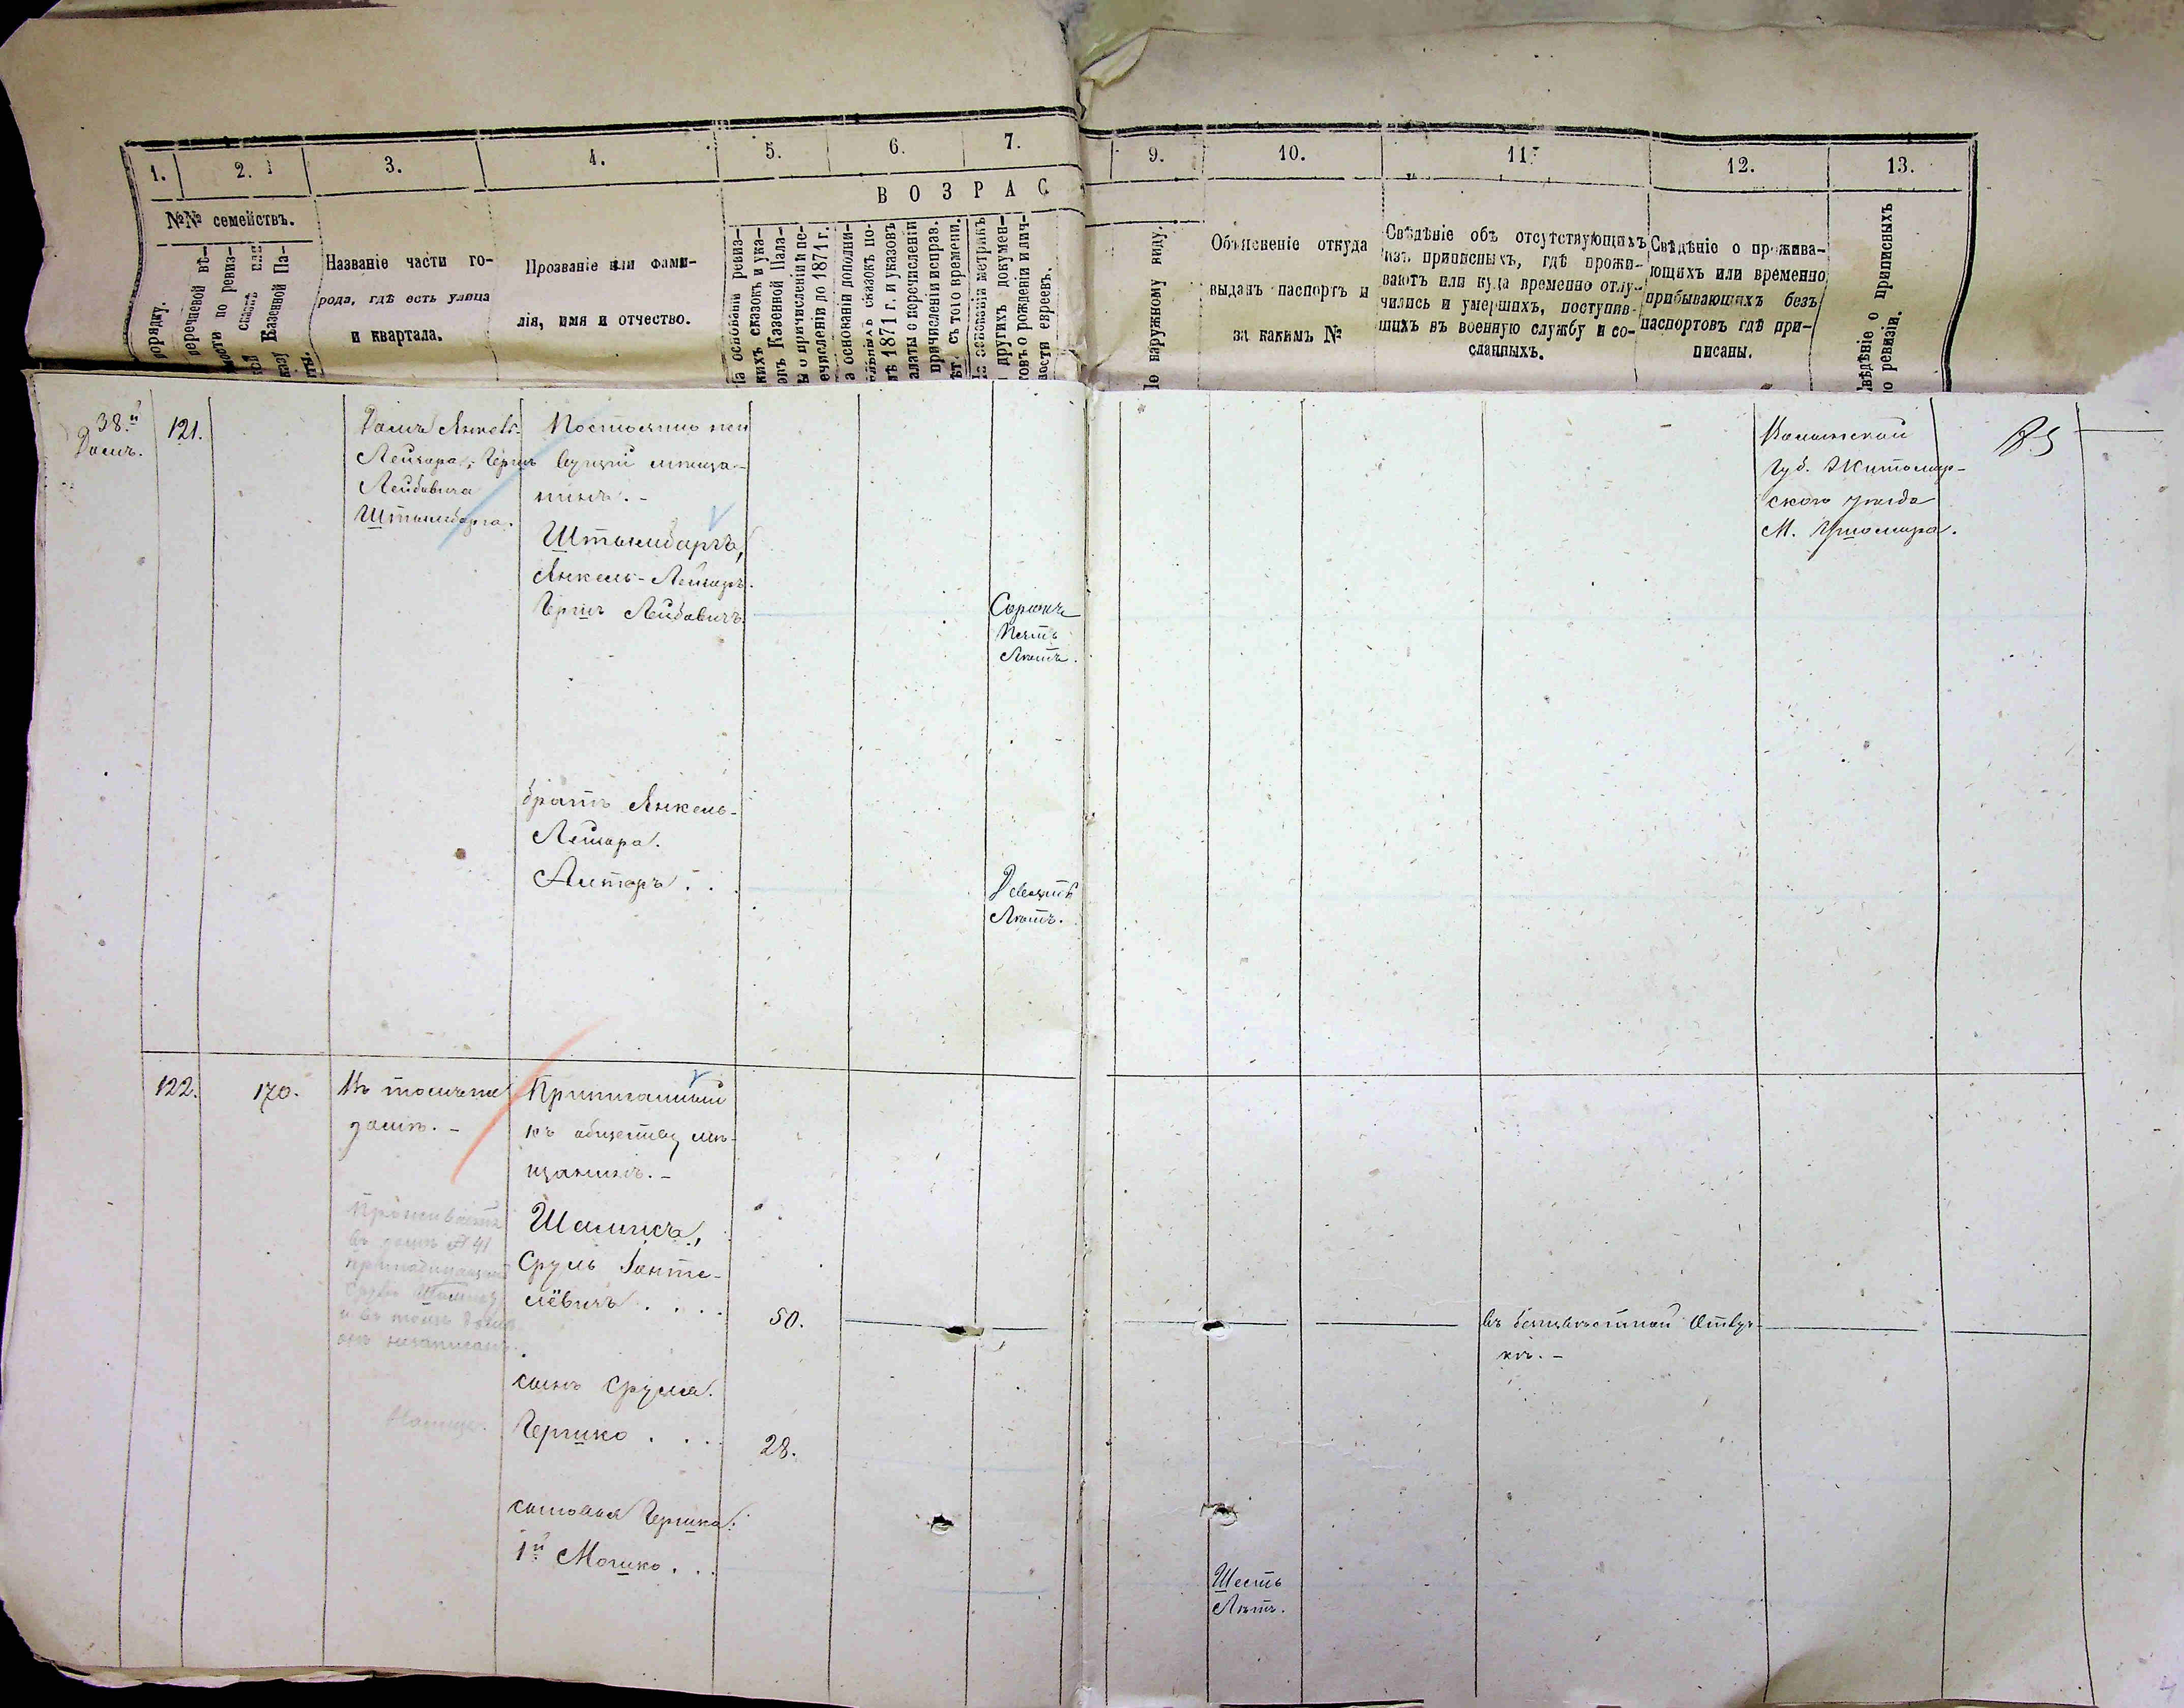 1. 2. 3. 4. 5. 6. 7. 9. 10. 11. 12. 13.
В О З Р А С
№№ семействъ.
порядку.
перечневой вѣ-
мости по ревиз-
сказкѣ или
казу Казенной Па-
Названіе части го-
рода, гдѣ есть улица
и квартала.
Прозваніе или фами-
лія, имя и отчество.
На основаніи ревиз-
кихъ сказокъ и ука-
овъ Казенной Пала-
ы о причисленіи и пе-
ечисленіи до 1871 г.
а основаніи дополни-
ельныхъ сказокъ по-
лѣ 1871 г. и указовъ
алаты о перечисленіи
причисленіи исправ.
ѣтъ съ того времени.
На основаніи метрикъ
и другихъ докумен-
товъ о рожденіи и лич-
ности евреевъ.
По наружному виду.
Объясненіе откуда
выданъ паспортъ и
за какимъ №
Свѣдѣніе объ отсутствующихъ
изъ приписныхъ, гдѣ прожи-
ваютъ или куда временно отлу-
чились и умершихъ, поступив-
шихъ въ военную службу и со-
сланныхъ.
Свѣдѣніе о прожива-
ющихъ или временно
прибывающихъ безъ
паспортовъ гдѣ при-
писаны.
Свѣдѣніе о приписныхъ
по ревизіи.
38.й
Домъ.
121.
Домъ Янкель-
Лейзора, Герша
Лейбовича
Штымбарга.
Постоянно жи
вущій мѣща-
нинъ. -
Штымбаргъ,
Янкель-Лейзоръ.
Гершъ Лейбовичъ
Сорокъ
Пять
Лѣтъ.
Волынской
Губ. Житомир-
скаго уѣзда
М. Ушомира.
братъ Янкель-
Лейзора.
Алтеръ . .
Девять
Лѣтъ.
122.
170.
Въ томъ же
домѣ. -
Приписанный
къ обществу мѣ-
щанинъ. -
Проживаетъ
въ домѣ № 41
принадлежащій
Срулю Шамису
и въ томъ домѣ
онъ незаписанъ.
Сруль
50.
въ безизвѣстной Отлуч-
кѣ. -
сынъ Сруля.
Гершко . . .
28.
сыновья Гершка:
1й Мошко . . .
Шесть
Лѣтъ.